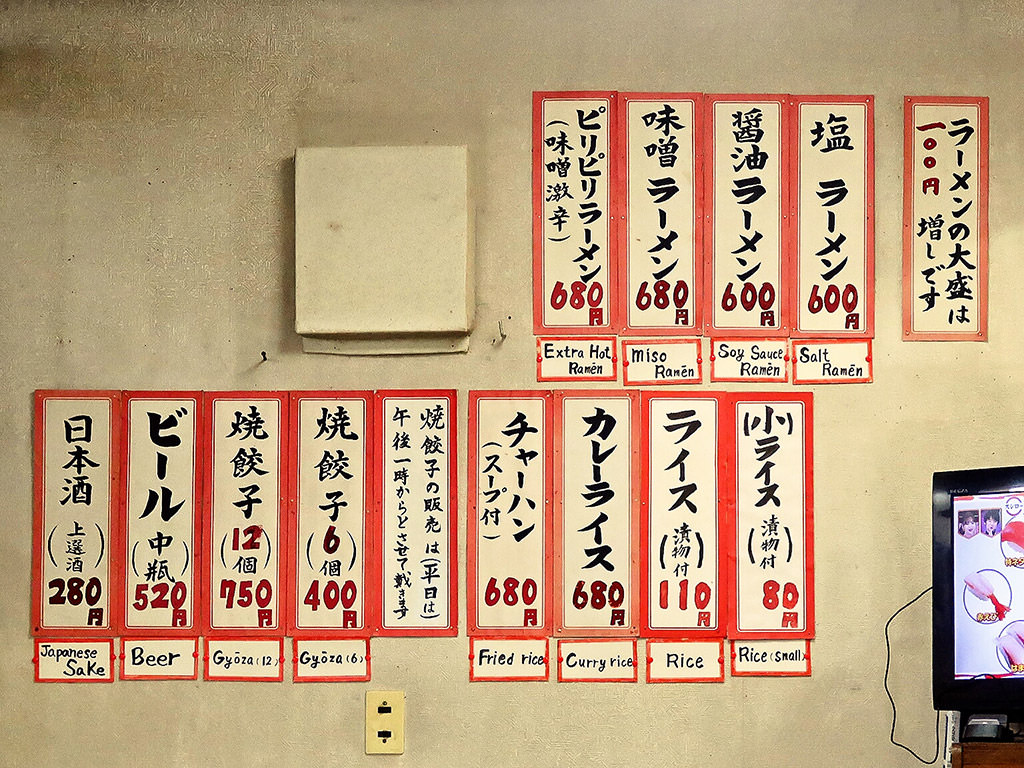 ラーメンの大盛は
一〇〇円 増しです
塩 ラーメン
600円
Salt
Ramēn
醤油 ラーメン
600円
Soy Sauce
Ramēn
味噌 ラーメン
680円
miso
Ramēn
ピリピリラーメン
(味噌激辛)
680円
Extra Hot
Ramēn
(小)ライス
(漬物付)
80円
Rice (small)
ライス
(漬物付)
110円
Rice
カレーライス
680円
Curry rice
チャーハン
(スープ付)
680円
Fried rice
焼餃子の販売は(平日は)
午後一時からとさせて戴きます
焼餃子
6
(個)
400円
Gyōza (6)
焼餃子
12
(個)
750円
Gyōza (12)
ビール
(中瓶)
520円
Beer
日本酒
(上選酒)
280円
Japanese
Sake